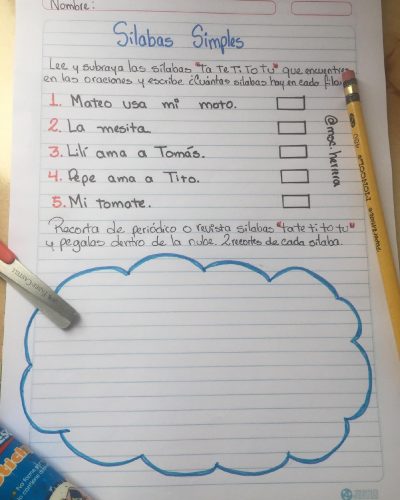 Nombre:
Silabas Simples
Lee y subraya las silabas "Ta Te Ti To Tu" que encuentres
en las oraciones y escribe ¿Cuántas silabas hay en cada
1. Mateo usa mi moto.
2. La mesita
3. Lilí ama a Tomás.
4. Pepe ama a Tito.
5. Mi tomate.
@moc.herrera
Recorta de periódico o revista silabas "ta te ti to tu"
y pegalas dentro de la nube. 2 recortes de cada silaba.